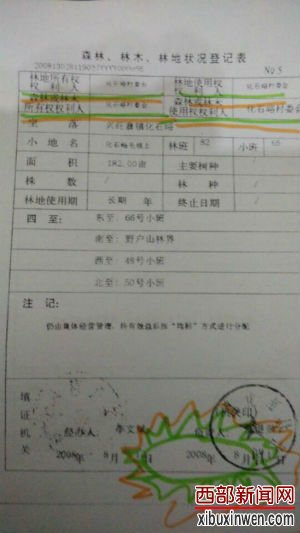 森林、林木、林地状况登记表
No 5
林地所有权权利人 化石峪村委会 林地使用权权利人 化石峪村委会
森林或林木所有权权利人 化石峪村委会 森林或林木使用权权利人 化石峪村委会
坐落 镇化石峪
小地名 林班 82 小班 65
面积 182.00亩 主要树种
株数 / 林种 /
林地使用期 长期 年 终止日期
四至: 东至: 66号小班
南至: 野户山林界
西至: 48号小班
北至: 50号小班
注记:
仍由集体经营管理,所有效益拟按“均利”方式进行分配
填证机关
经办人: 李文
2008年 8月 日 2008年 8月 日
西部新闻网
xibuxinwen.com